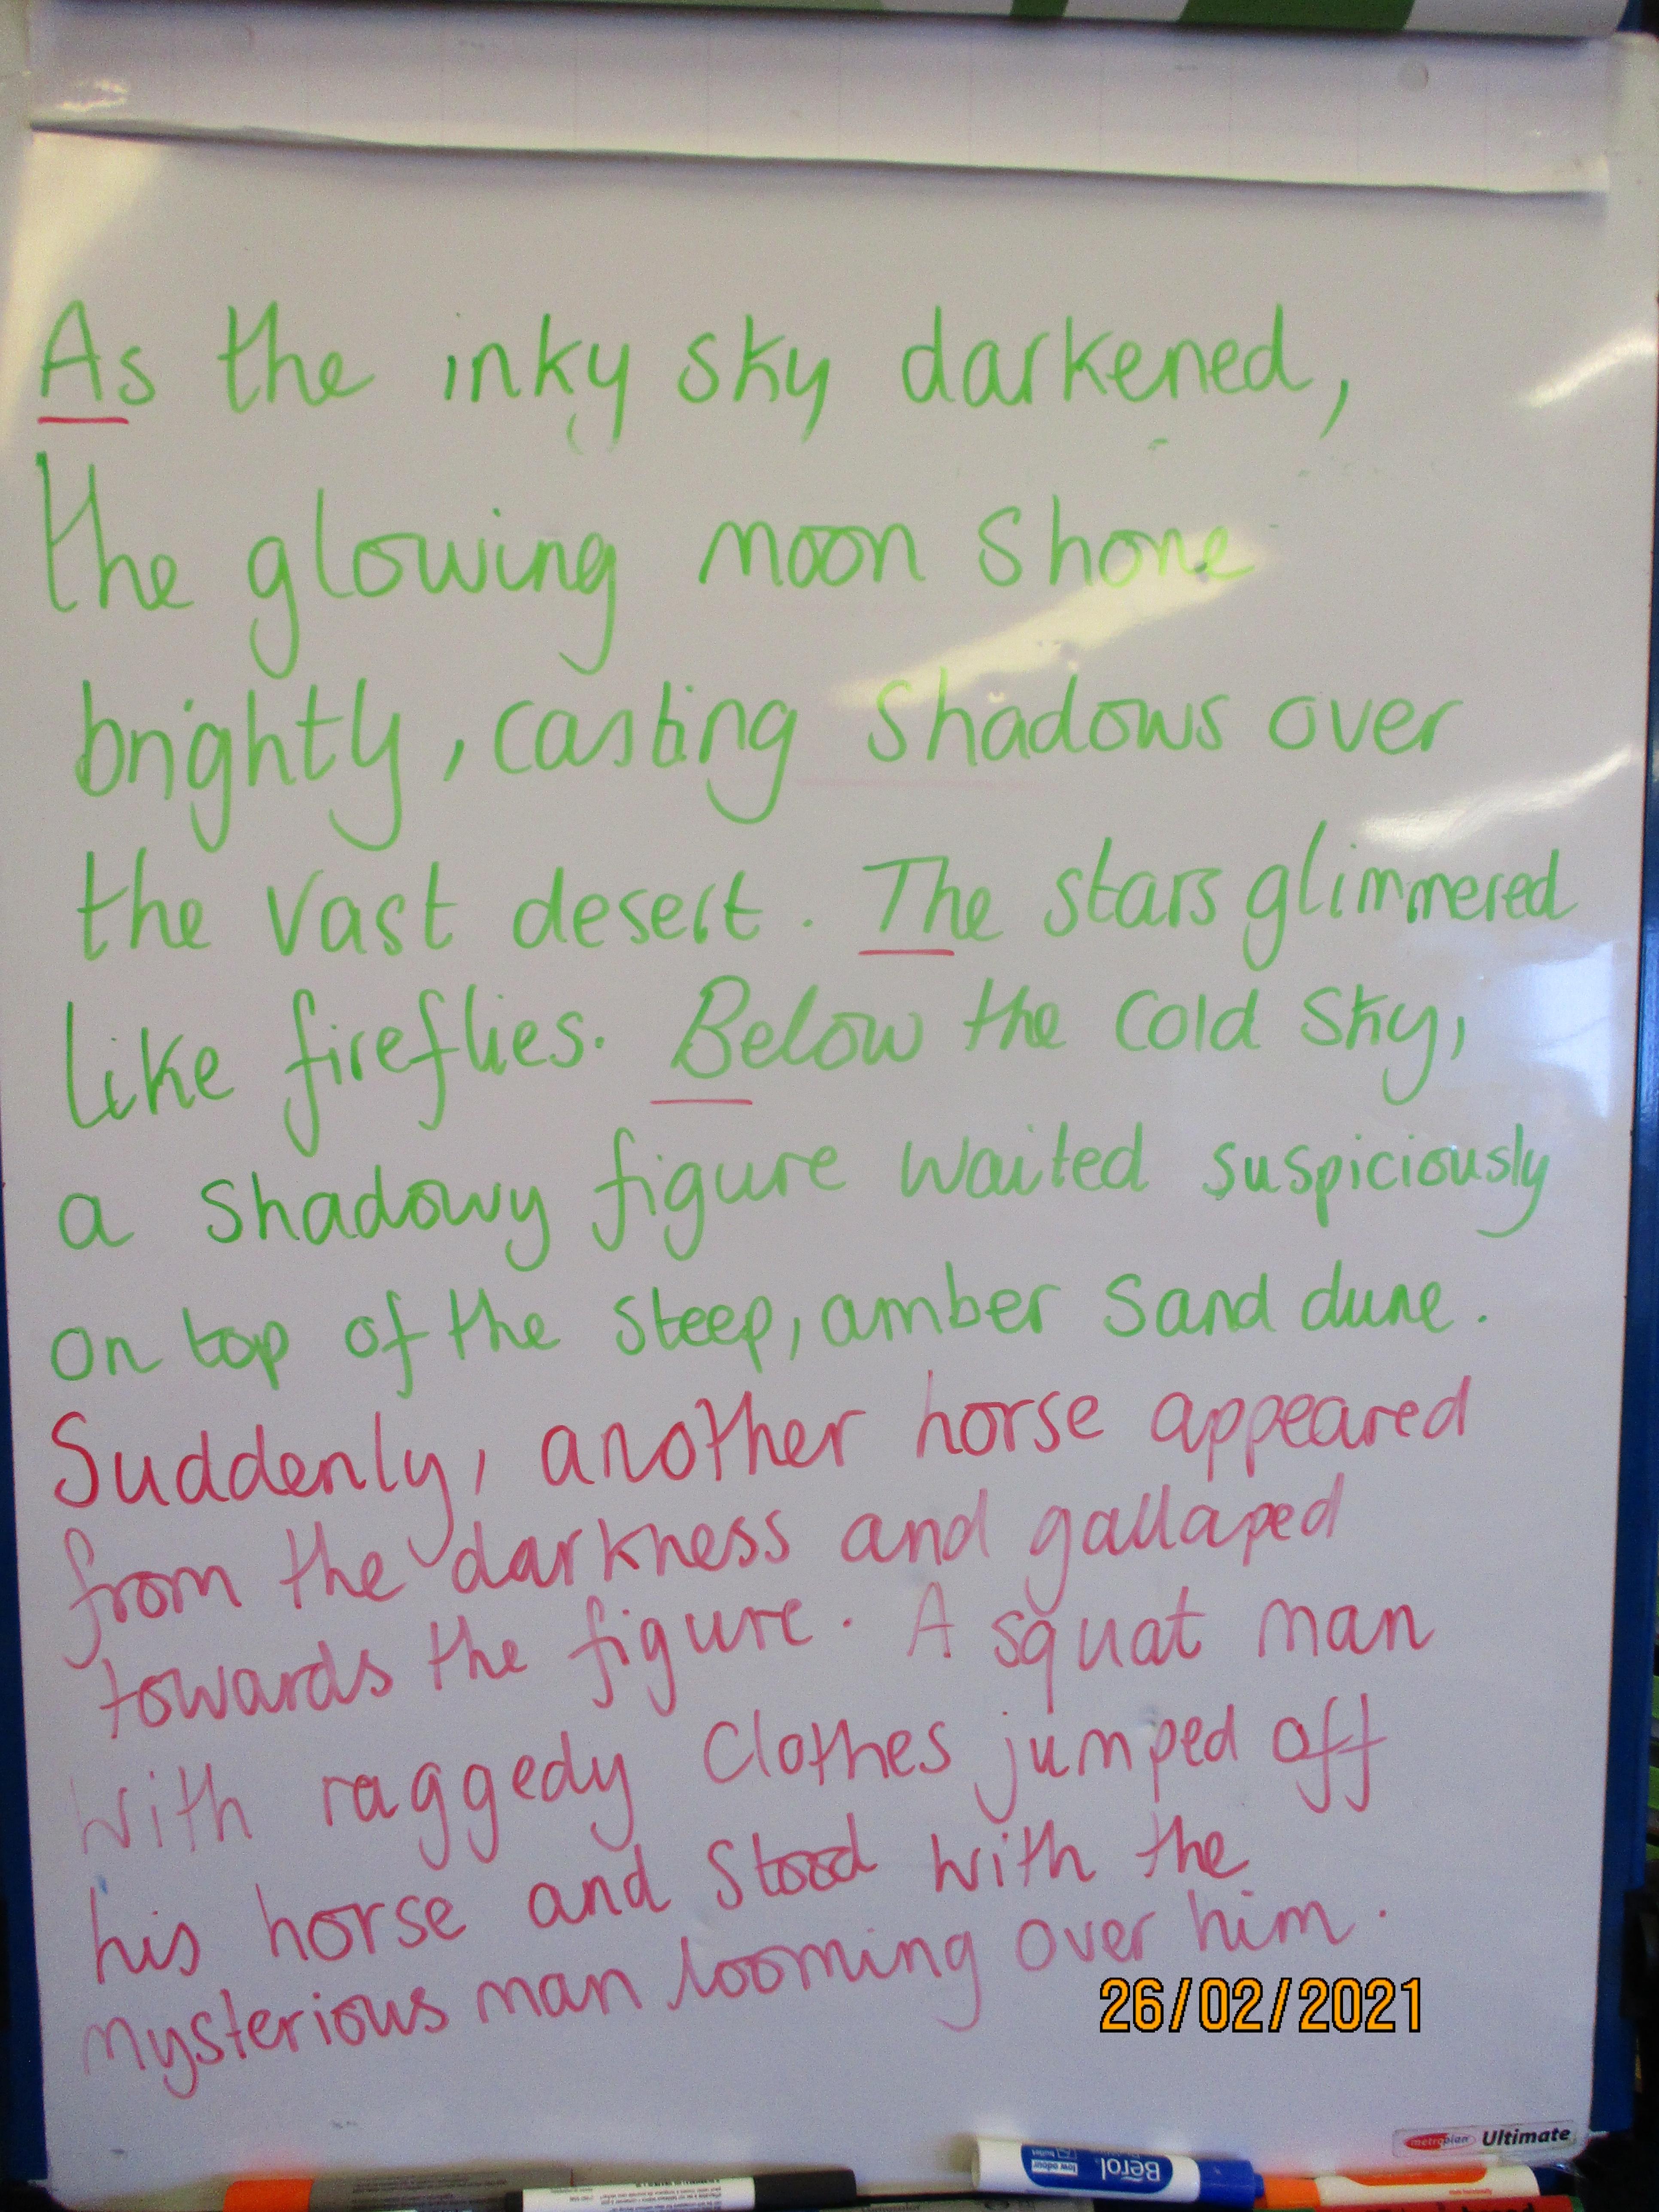 As the inky sky darkened,
the glowing moon shone
brightly, casting shadows over
the vast desert. The stars glimmered
like fireflies. Below the cold sky,
a shadowy figure waited suspiciously
on top of the steep, amber sand dune.
Suddenly, another horse appeared
from the darkness and gallaped
towards the figure. A squat man
with raggedy clothes jumped off
his horse and stood with the
mysterious man looming over him.
26/02/2021
metroplan Ultimate
Berol
low odour